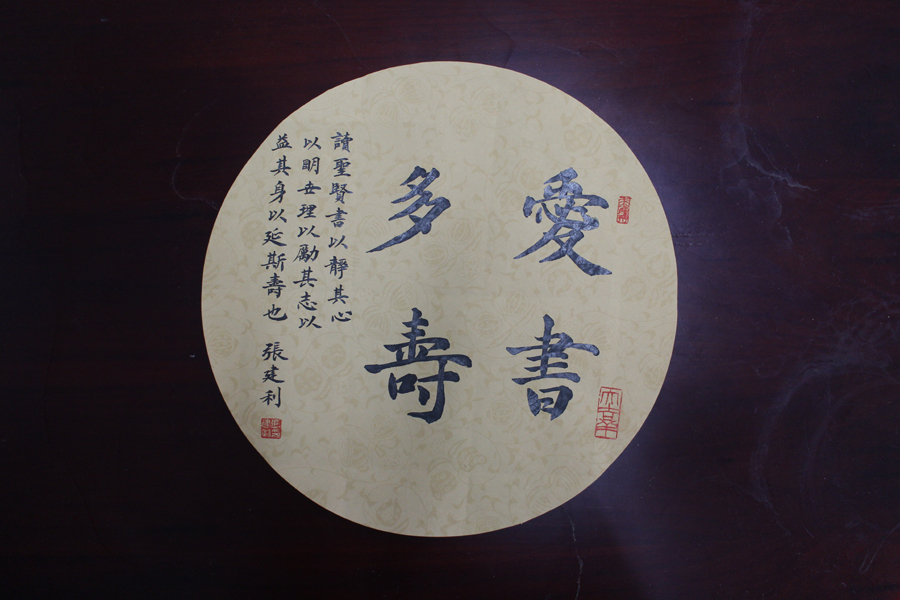 愛書
多壽
讀聖賢書以靜其心
以明世理以勵其志以
益其身以延斯壽也
張建利